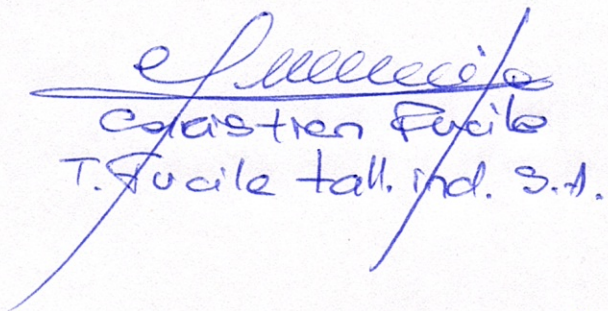 Cristian Fucile
T. Fucile tall. ind. S.A.